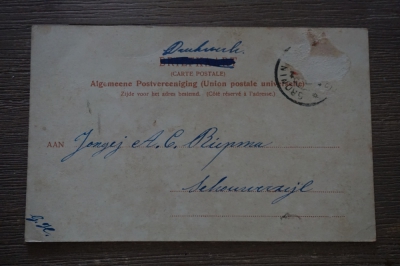 Drukwerk
(CARTE POSTALE)
Algemeene Postvereeniging (Union postale universelle)
Zijde voor het adres bestemd. (Côté réservé à l'adresse.)
AAN Jongej A. C. Riepma
Schouwerzijl
G. H.